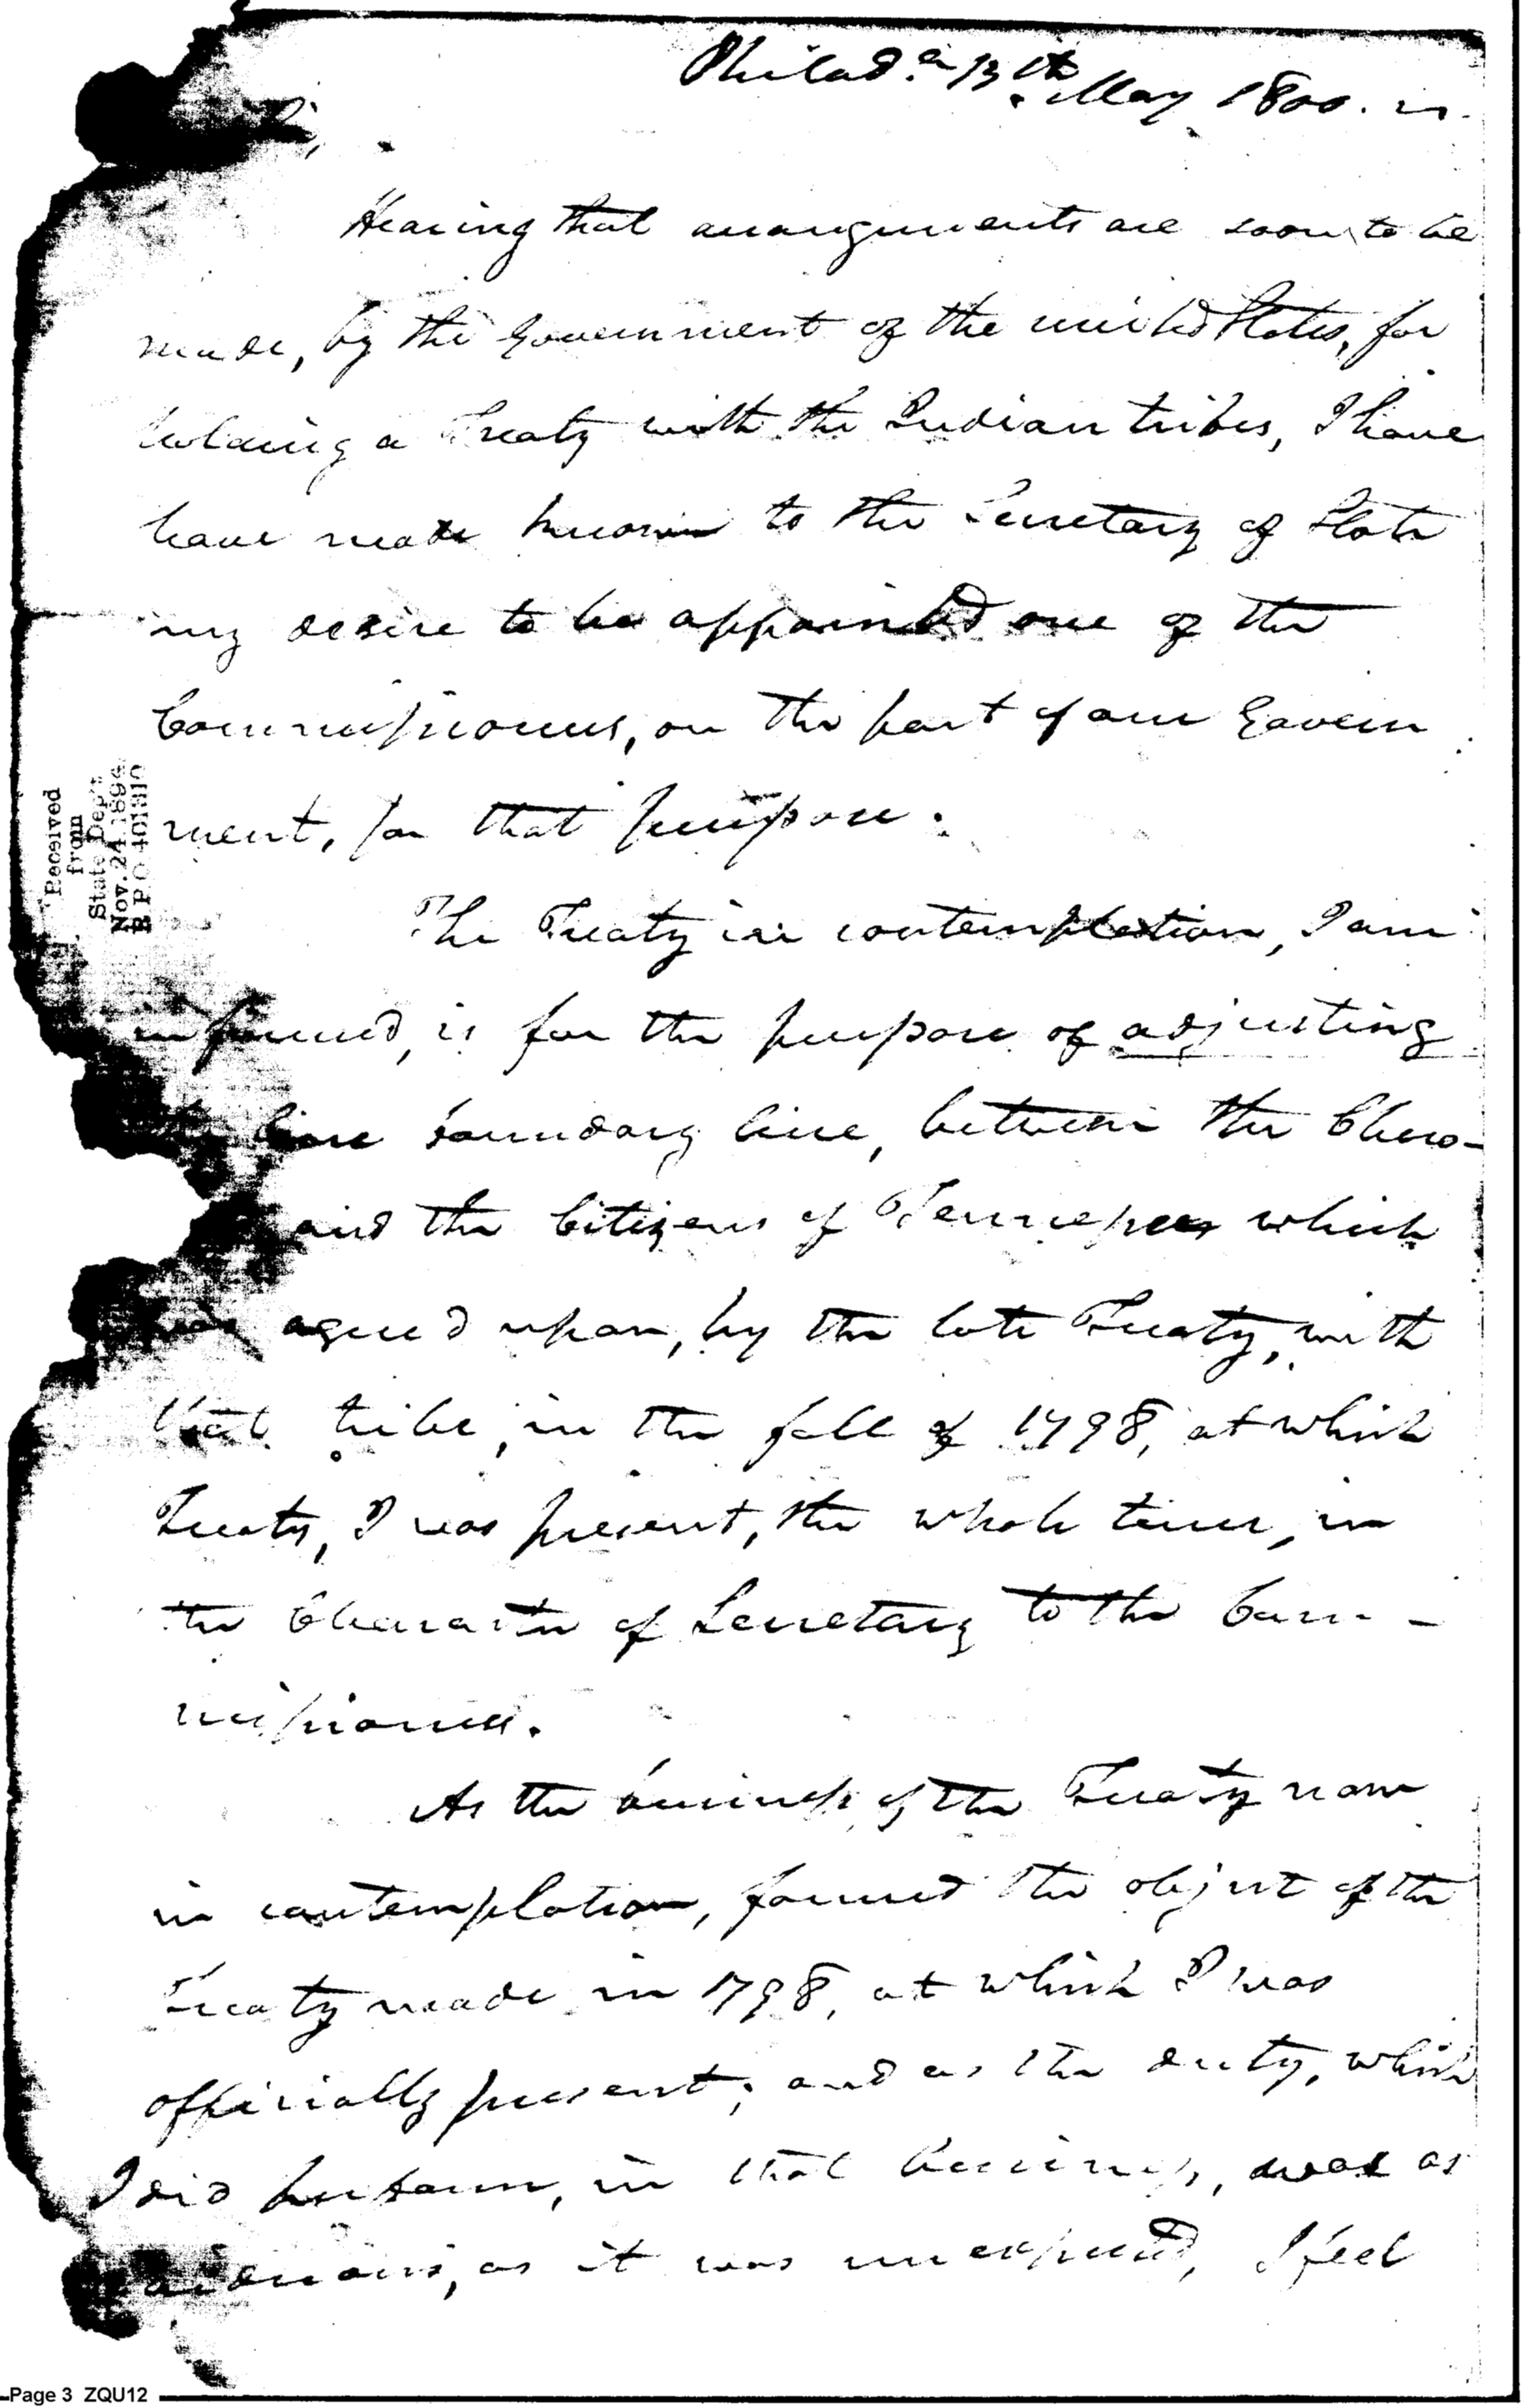 Philad.a 13th May 1800.
Hearing that arrangements are soon to be
made, by the Government of the united States, for
holding a Treaty with the Indian tribes, I have
have made known to the Secretary of State
my desire to be appointed one of the
Commissioners, on the part of our Govern
ment, for that purpose.
The Treaty in contemplation, I am
informed, is for the purpose of adjusting
the line boundary line, between the Chero-
and the Citizens of Tennessee which
was agreed upon, by the late Treaty, with
that tribe, in the fall of 1798, at which
Treaty, I was present, the whole time, in
the Character of Secretary to the Com-
missioners.
As the business of the Treaty now
in contemplation, formed the object of the
Treaty made in 1798, at which I was
officially present; and as the duty, which
I did perform, in that business, was as
arduous, as it was unexpected, I feel
Received
from
State Dep't
Nov. 24 1894
R P O 401310
Page 3 ZQU12